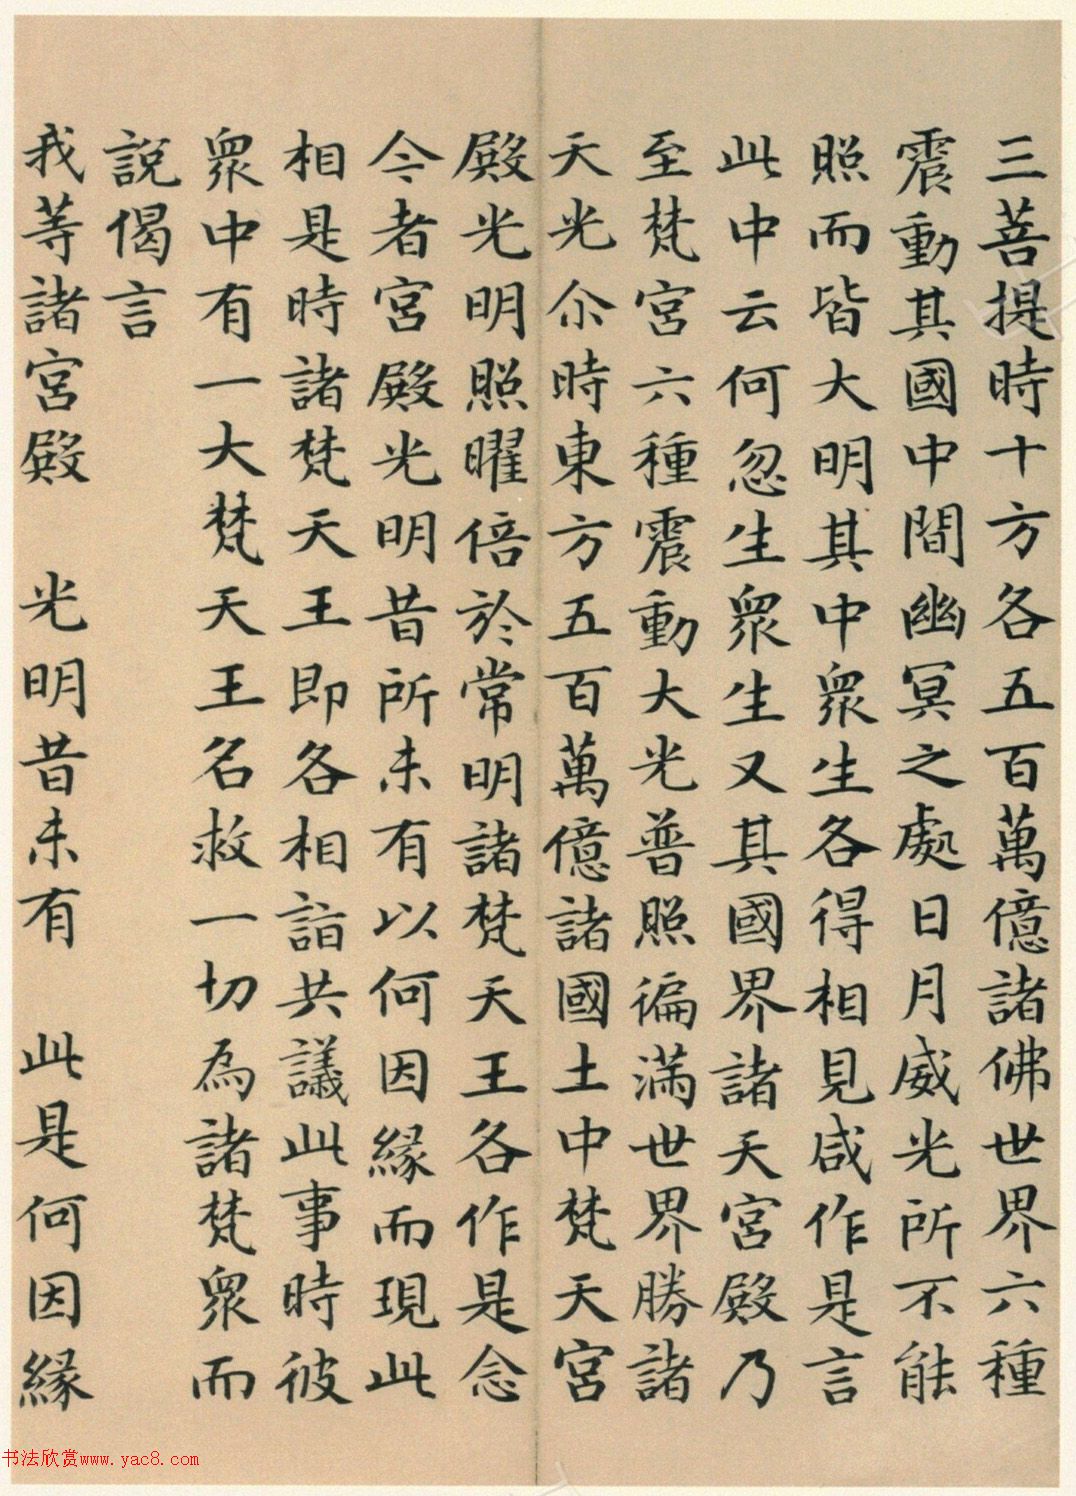 三菩提時十方各五百萬億諸佛世界六種
震動其國中間幽冥之處日月威光所不能
照而皆大明其中眾生各得相見咸作是言
此中云何忽生眾生又其國界諸天宮殿乃
至梵宮六種震動大光普照徧滿世界勝諸
天光尒時東方五百萬億諸國土中梵天宮
殿光明照曜倍於常明諸梵天王各作是念
今者宮殿光明昔所未有以何因緣而現此
相是時諸梵天王即各相詣共議此事時彼
眾中有一大梵天王名救一切為諸梵眾而
說偈言
我等諸宮殿 光明昔未有 此是何因緣
书法欣赏www.yac8.com